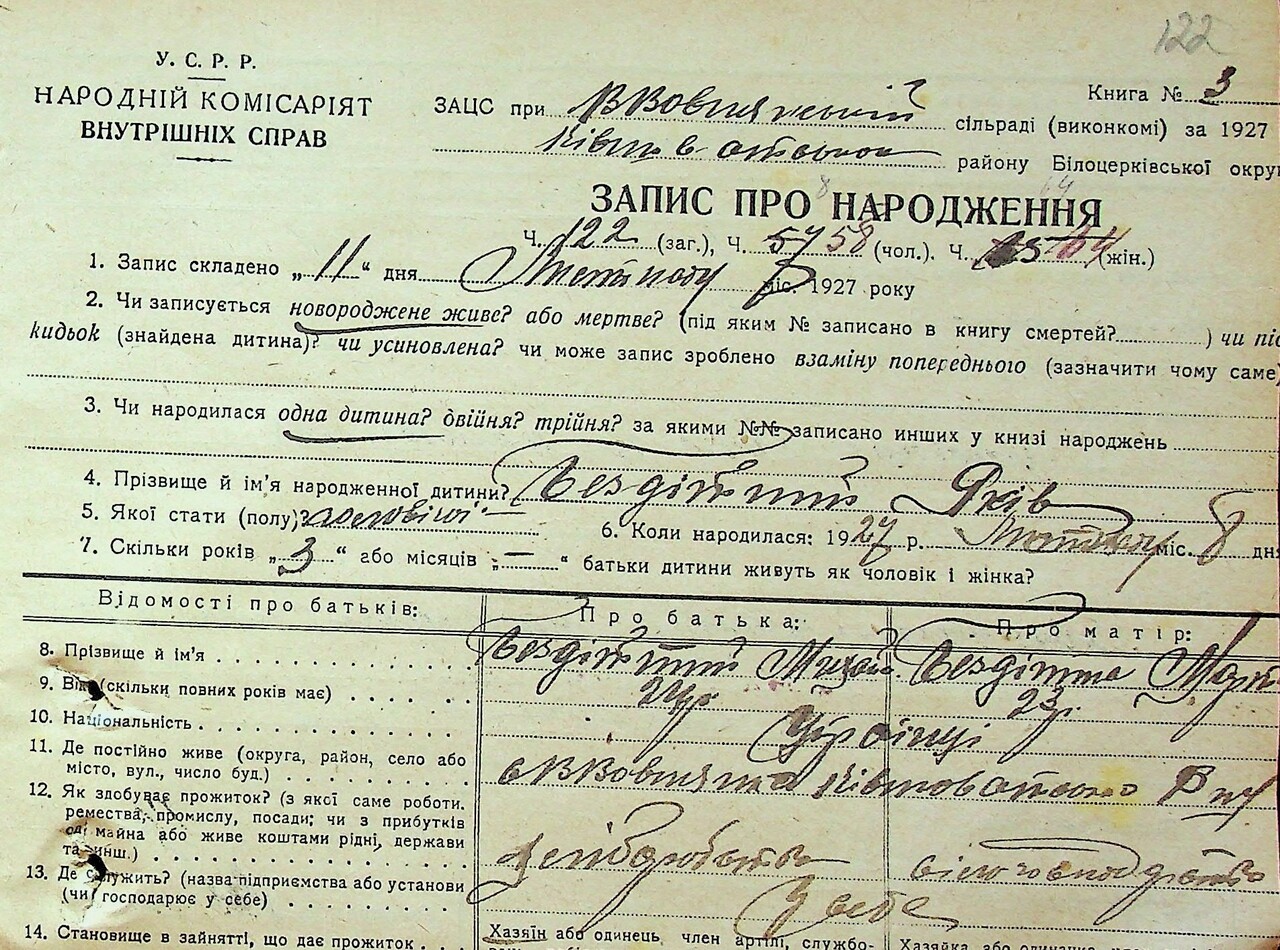 122
У. С. Р. Р.
НАРОДНІЙ КОМІСАРІЯТ
ВНУТРІШНІХ СПРАВ
Книга № 3
ЗАЦС при сільраді (виконкомі) за 1927
району Білоцерківської окру
ЗАПИС ПРО НАРОДЖЕННЯ
Ч. 122 (заг.), Ч. 57 58 (чол.). Ч. 64 (жін.)
1. Запис складено „ 11 “ дня міс. 1927 року
2. Чи записується новороджене живе? або мертве? (під яким № записано в книгу смертей? ) чи під
кидьок (знайдена дитина)? чи усиновлена? чи може запис зроблено взаміну попереднього (зазначити чому саме)
3. Чи народилася одна дитина? двійня? трійня? за якими №№ записано инших у книзі народжень
4. Прізвище й ім'я народженної дитини? Бездітний Яків
5. Якої стати (полу)? чоловічої 6. Коли народилася: 1927 р. міс. 8 дня
7. Скільки років „ 3 “ або місяців „ — “ батьки дитини живуть як чоловік і жінка?
Відомості про батьків: Про батька: Про матір:
8. Прізвище й ім'я Бездітний Бездітна
9. Вік (скільки повних років має) 24р 23р.
10. Національність Українці
11. Де постійно живе (округа, район, село або
місто, вул., число буд.)
12. Як здобуває прожиток? (з якої саме роботи,
ремества, промислу, посади; чи з прибутків
од майна або живе коштами рідні, держави
та инш.) хліборобство
13. Де служить? (назва підприємства або установи
(чи господарює у себе) У себе
14. Становище в зайнятті, що дає прожиток Хазяїн або одинець, член артілі, службо- Хазяйка або одинока, член